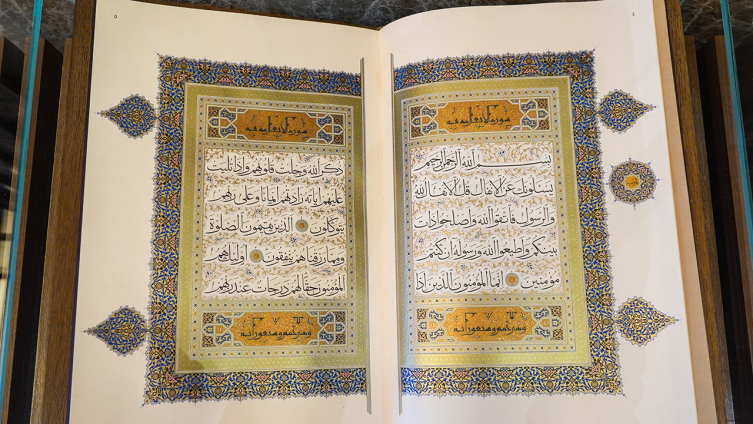 سورة الانفال مدنية
بسم الله الرحمن الرحيم
يسئلونك عن الانفال قل الانفال لله
والرسول فاتقوا الله واصلحوا ذات
بينكم واطيعوا الله ورسوله ان كنتم
مؤمنين انما المؤمنون الذين اذا
وسبعون آية
سورة الانفال مدنية
ذكر الله وجلت قلوبهم واذا تليت
عليهم اياته زادتهم ايمانا وعلى ربهم
يتوكلون الذين يقيمون الصلوة
ومما رزقناهم ينفقون اولئك هم
المؤمنون حقا لهم درجات عند ربهم
وسبعون آية